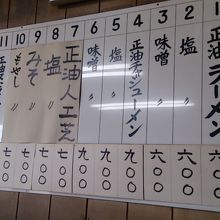 1
2 塩
六〇〇
3 味噌
六〇〇
4 正油チャシューメン
九〇〇
5 塩
九〇〇
6 味噌
九〇〇
7 正油人工芝
七〇〇
8 塩
七〇〇
9 みそ
七〇〇
10 もやし
七〇〇
11 正油
七〇〇